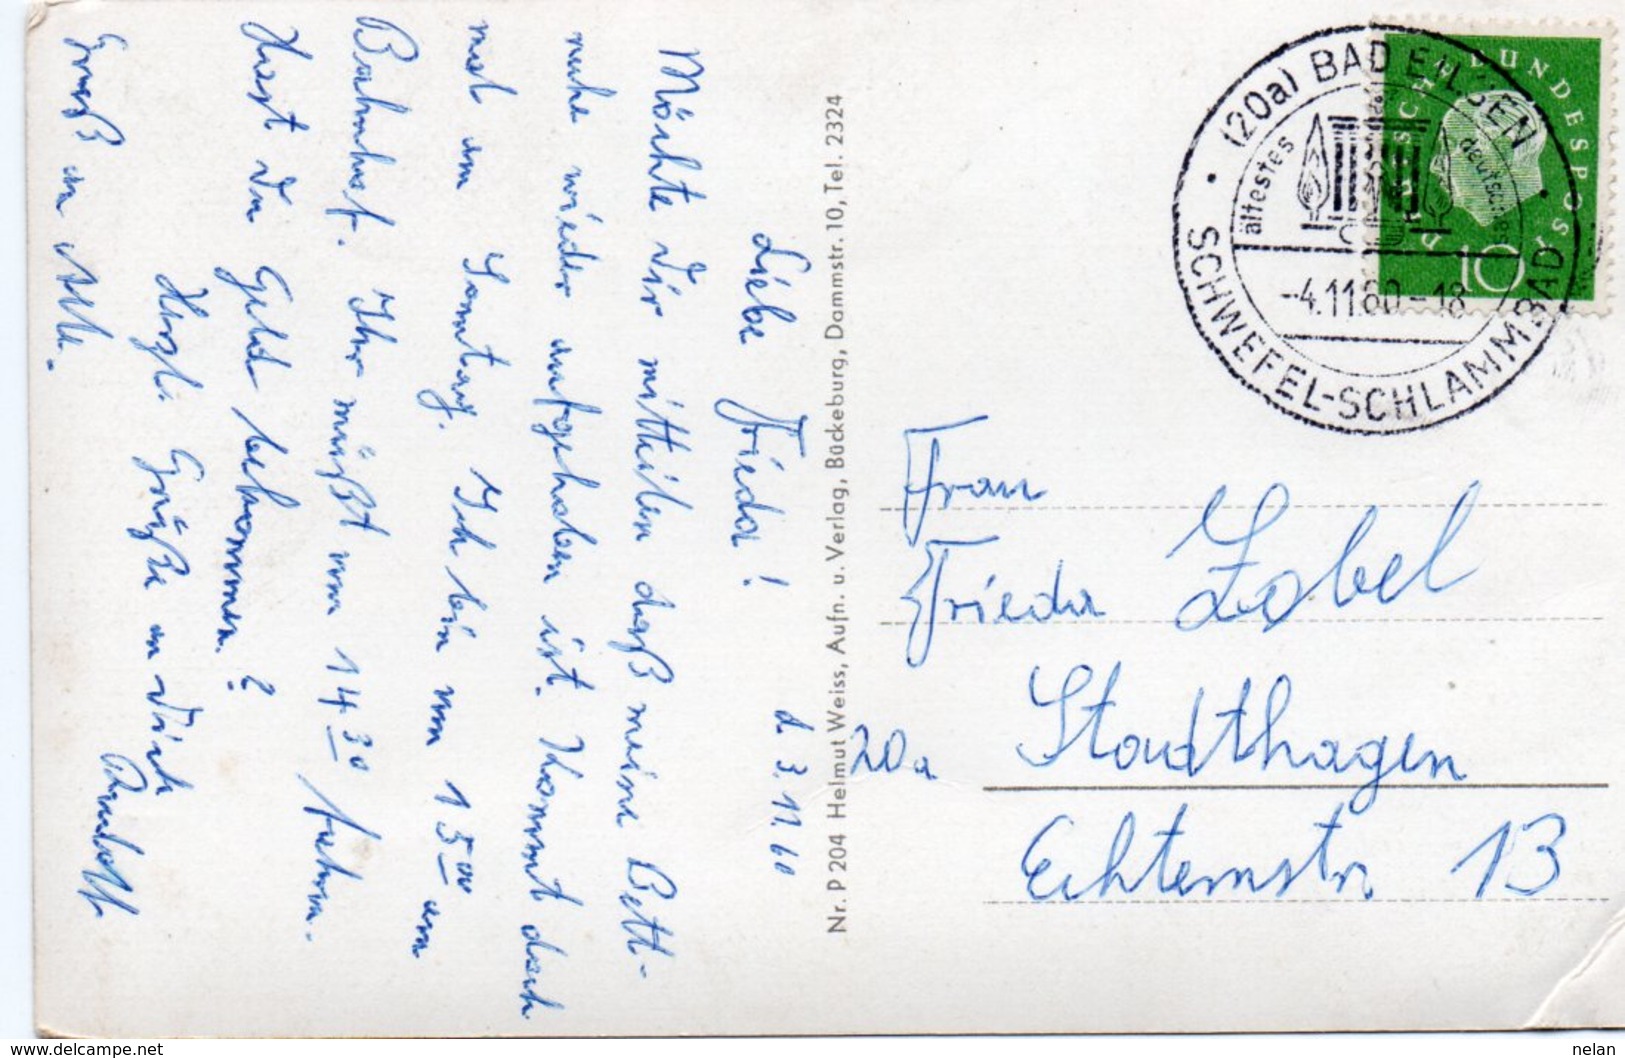 d. 3.11.60
Liebe Frieda!
Möchte Dir mitteilen daß meine Bett-
ruhe wieder aufgehoben ist. Kommt doch
mal am Sonntag. Ich bin um 15 00 am
Bahnhof. Ihr müßt um 14 30 fahren.
Hast Du Geld bekommen?
Herzl. Grüße an Dich
Gruß an Alle.
Nr. P 204 Helmut Weiss, Aufn. u. Verlag, Bückeburg, Dammstr. 10, Tel. 2324
(20a) BAD EILSEN
ältestes deutsches
-4.11.60-18
SCHWEFEL-SCHLAMMBAD
DEUTSCHE BUNDESPOST
10
Frau
Frieda Zobel
20a Stadthagen
Echternstr 13
www.delcampe.net
nelan